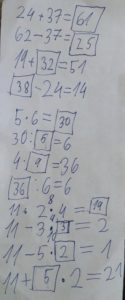 24+37=61
62-37=25
19+32=51
38-24=14
5·6=30
30:5=6
4·9=36
36:6=6
11+2·4=19
11-3·3=2
11-5·2=1
11+5·2=21